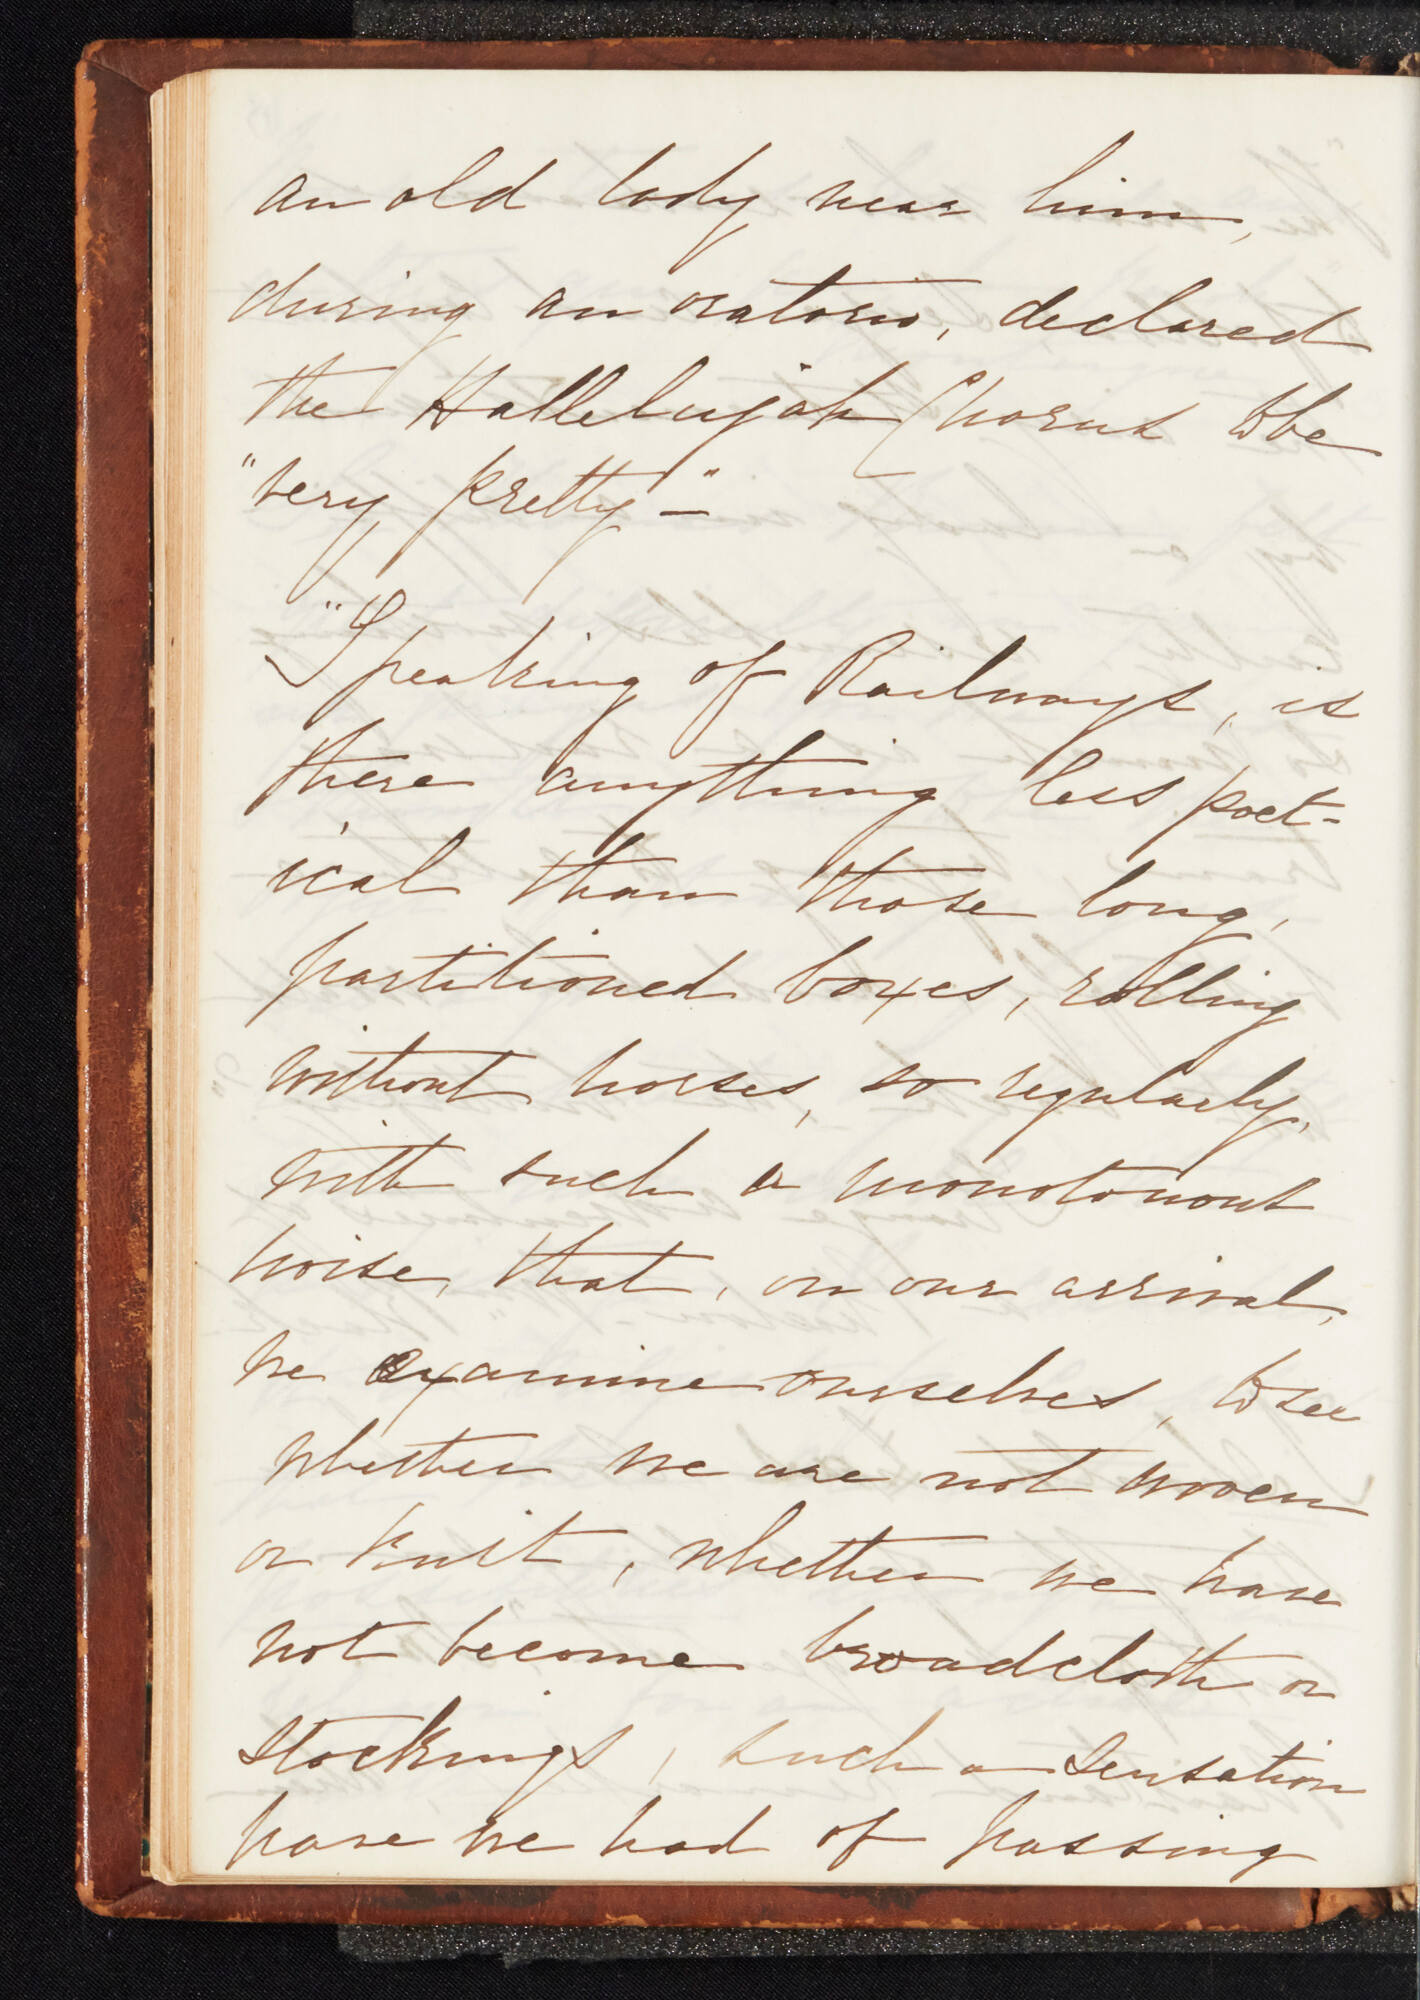 an old lady near him,
during an oratorio, declared
the Hallelujah Chorus to be
"very pretty—"
"Speaking of Railways, is
there anything less poet-
ical than those long,
partitioned boxes, rolling
without horses, so regularly,
with such a monotonous
noise, that, on our arrival,
we examine ourselves, to see
whether we are not woven
or knit, whether we have
not become broadcloth or
stockings, such a sensation
have we had of passing